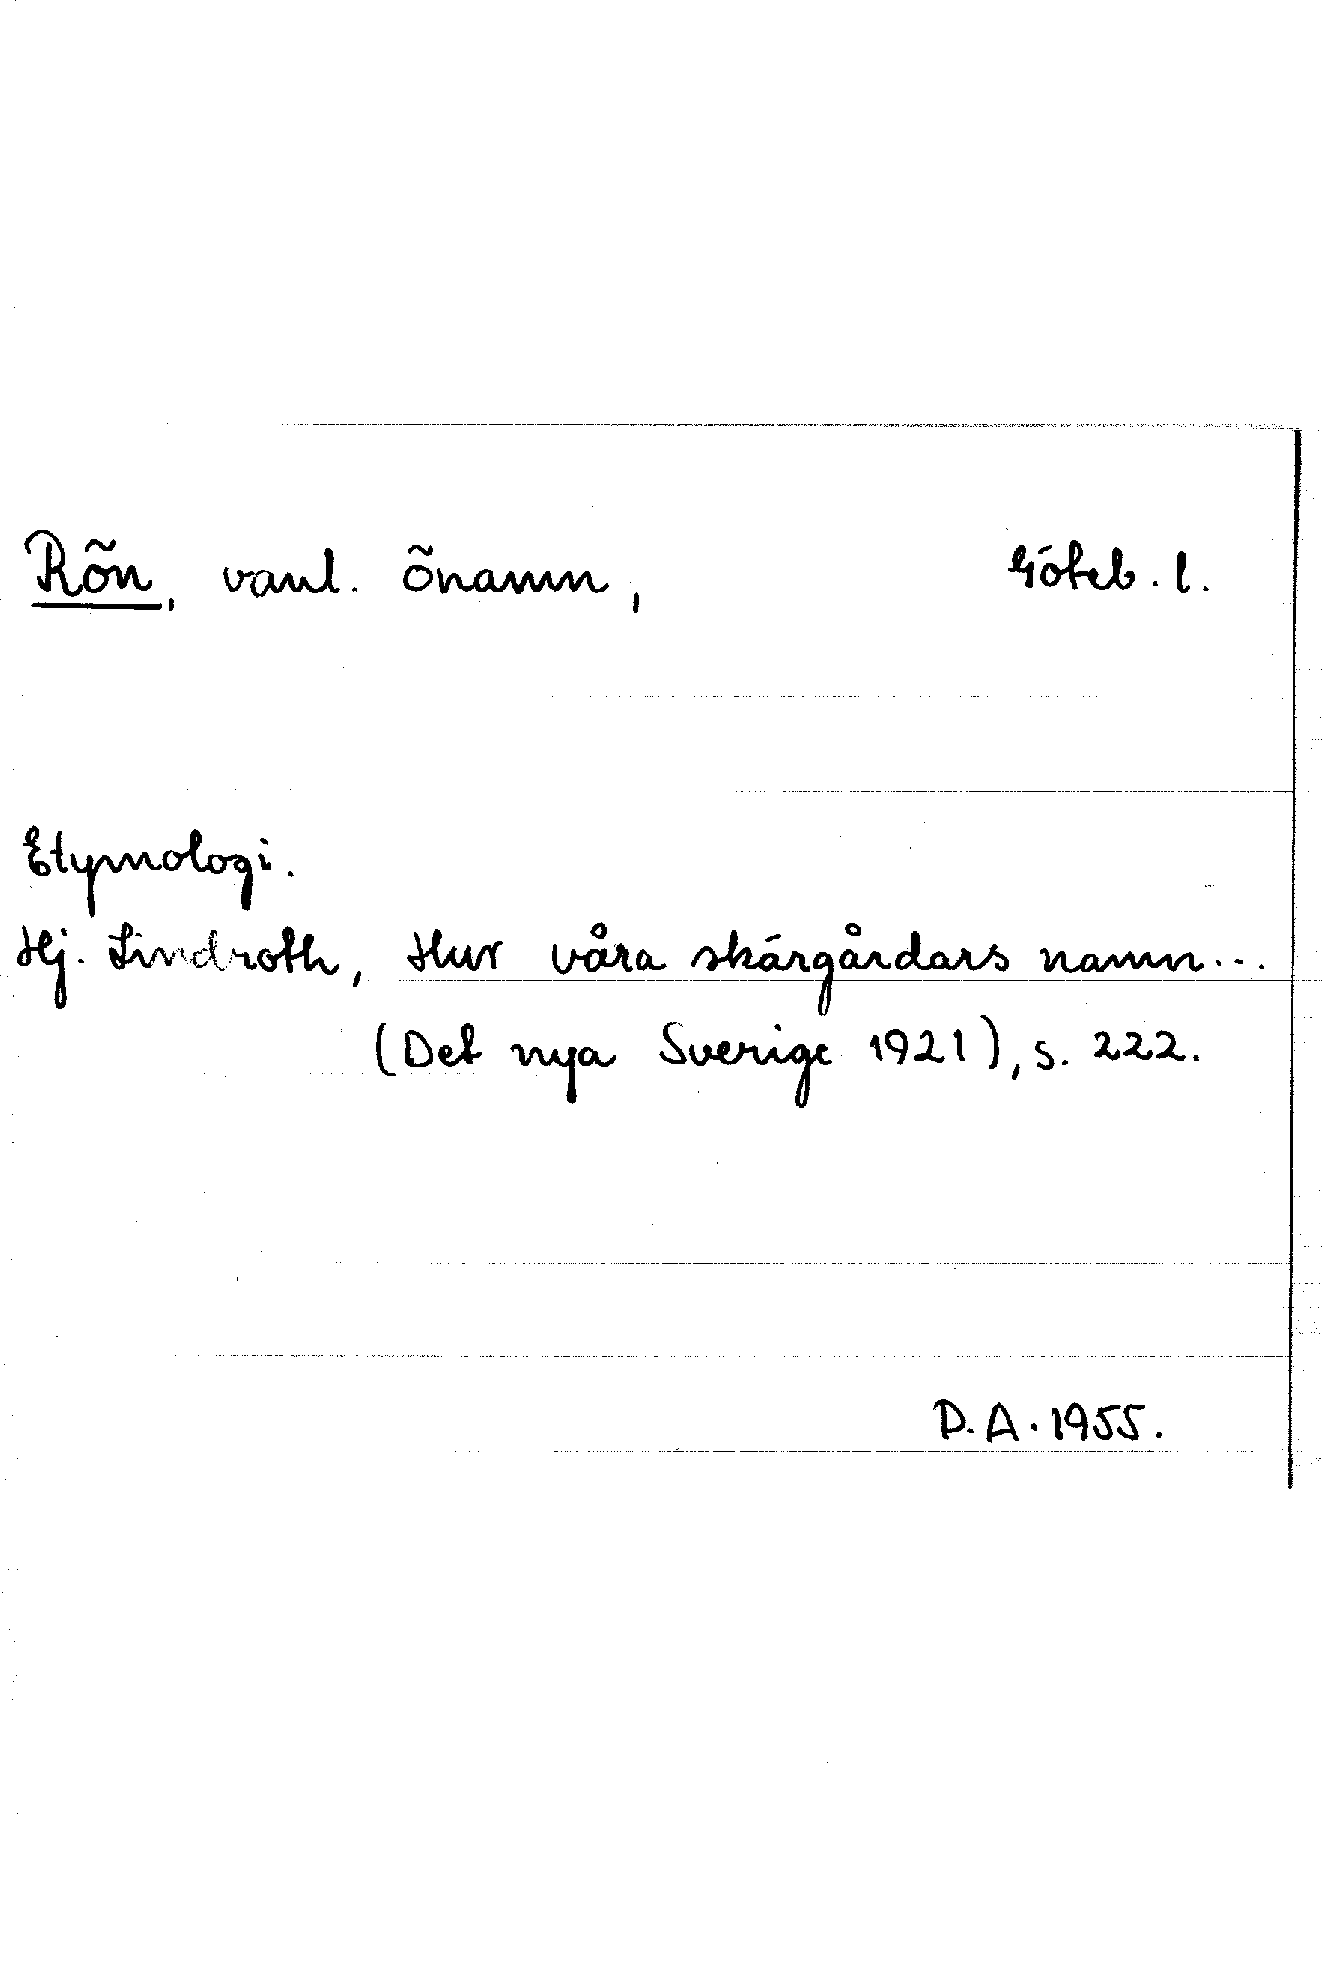 Rön, vanl. önamn, Göteb. l.
Etymologi.
Hj. Lindroth, Hur våra skärgårdars namn...
(Det nya Sverige 1921), s. 222.
D. A. 1955.